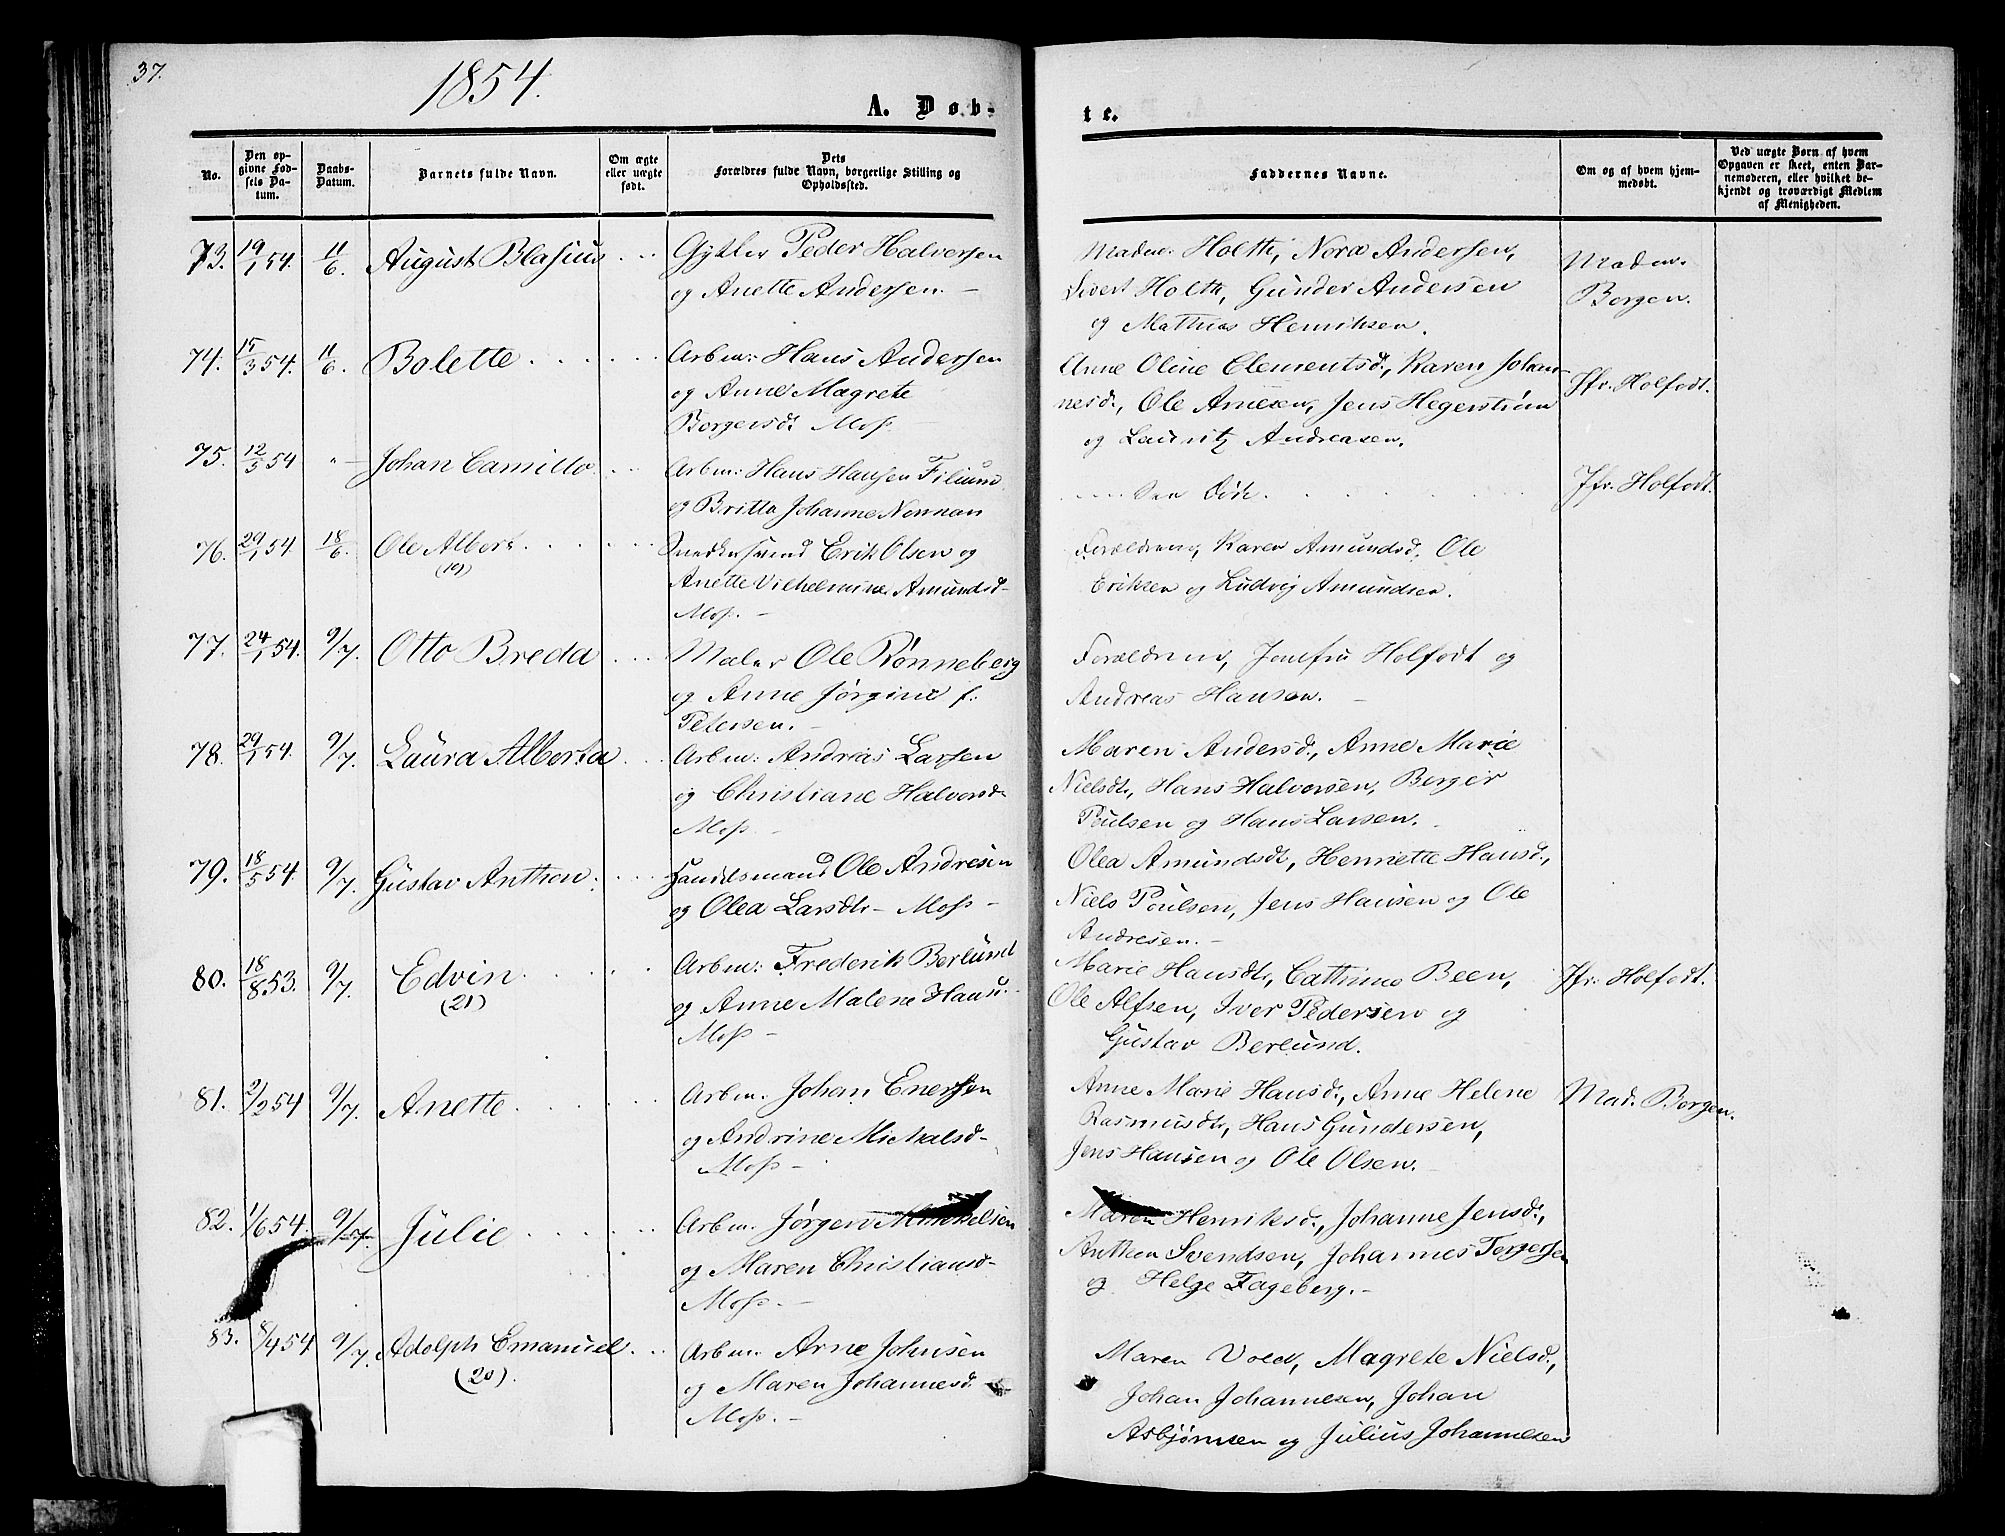 37.
1854.
A. Døb-
te.
No.
Den op-
givne Fød-
sels Da-
tum.
Daabs-
Datum.
Barnets fulde Navn.
Om ægte
eller uægte
født.
Dets
Forældres fulde Navn, borgerlige Stilling og
Opholdssted.
Faddernes Navne.
Om og af hvem hjem-
medøbt.
Ved uægte Børn af hvem
Opgaven er skeet, enten Bar-
nemoderen, eller hvilket be-
kjendt og troværdigt Medlem
af Menigheden.
73. 19/1 54. 11/6. August Blasius
Gytler Peder Halversen
og Anette Andersen. -
Madm: Holth, Nora Andersen,
Sivert Holth, Gunder Andersen
og Mathias Henriksen.
Madm.
Borgen.
74. 15/3 54. 11/6. Bolette
Arbm: Hans Andersen
og Anne Magrete
Borgersdt Moss. -
Anne Oline Clementsd., Karen Johan-
nesd., Ole Arnesen, Jens Hegerstrøm
og Lauritz Andreasen.
Jfr. Holfodt.
75. 12/5 54 " - Johan Camillo
Arbm: Hans Hansen Filiund
og Britta Johanne Norman
Jfr. Holfodt.
76. 29/1 54. 18/6. Ole Albert
(19)
Snedkersvend Erik Olsen og
Anette Vilhelmine Amundsd-
Moss. -
Forældrene, Karen Amundsd. Ole
Eriksen og Ludvig Amundsen.
77. 24/1 54. 9/7. Otto Breda
Maler Ole Rønneberg
og Anne Jørgine f:
Petersen. -
Forældrene, Jomfru Holfodt og
Andreas Hansen. -
78. 29/1 54. 9/7. Laura Alberta
Arbm: Andreas Larsen
og Christiane Halvorsd-
Moss. -
Maren Andersd., Anne Marie
Nielsdt, Hans Halvorsen, Berger
Poulsen og Hans Larsen.
79. 18/5 54. 9/7. Gustav Anthon
Handelsmand Ole Andresen
og Olea Larsdt - Moss -
Olea Amundsdt, Henriette Hansd.,
Niels Poulsen, Jens Hansen og Ole
Andresen. -
80. 18/8 53. 9/7. Edvin
(21)
Arbm: Frederik Berlund
og Anne Malene Hansd.
Moss -
Marie Hansdt, Cathrine Been,
Ole Alfsen, Iver Pedersen og
Gustav Berlund.
Jfr. Holfodt.
81. 2/2 54 9/7. Anette
Arbm. Johan Enersen
og Andrine Michalsd-
Moss -
Anne Marie Hansd., Anne Helene
Rasmusdt, Hans Gundersen,
Jens Hansen og Ole Olsen.
Mad. Borgen.
82. 1/6 54. 9/7. Julie
Arbm. Jørgen Mikkelsen
og Maren Christiansd-
Moss. -
Maren Henriksd., Johanne Jensd.,
Anthon Svendsen, Johannes Torgersen
og Helge Fageberg. -
83. 8/4 54 9/7. Adolph Emanuel
(20).
Arbm. Arne Johnsen
og Maren Johannesd.
Moss. -
Maren Vold, Magrete Nielsd.,
Johan Johannesen, Johan
Asbjørnsen og Julius Johannesen